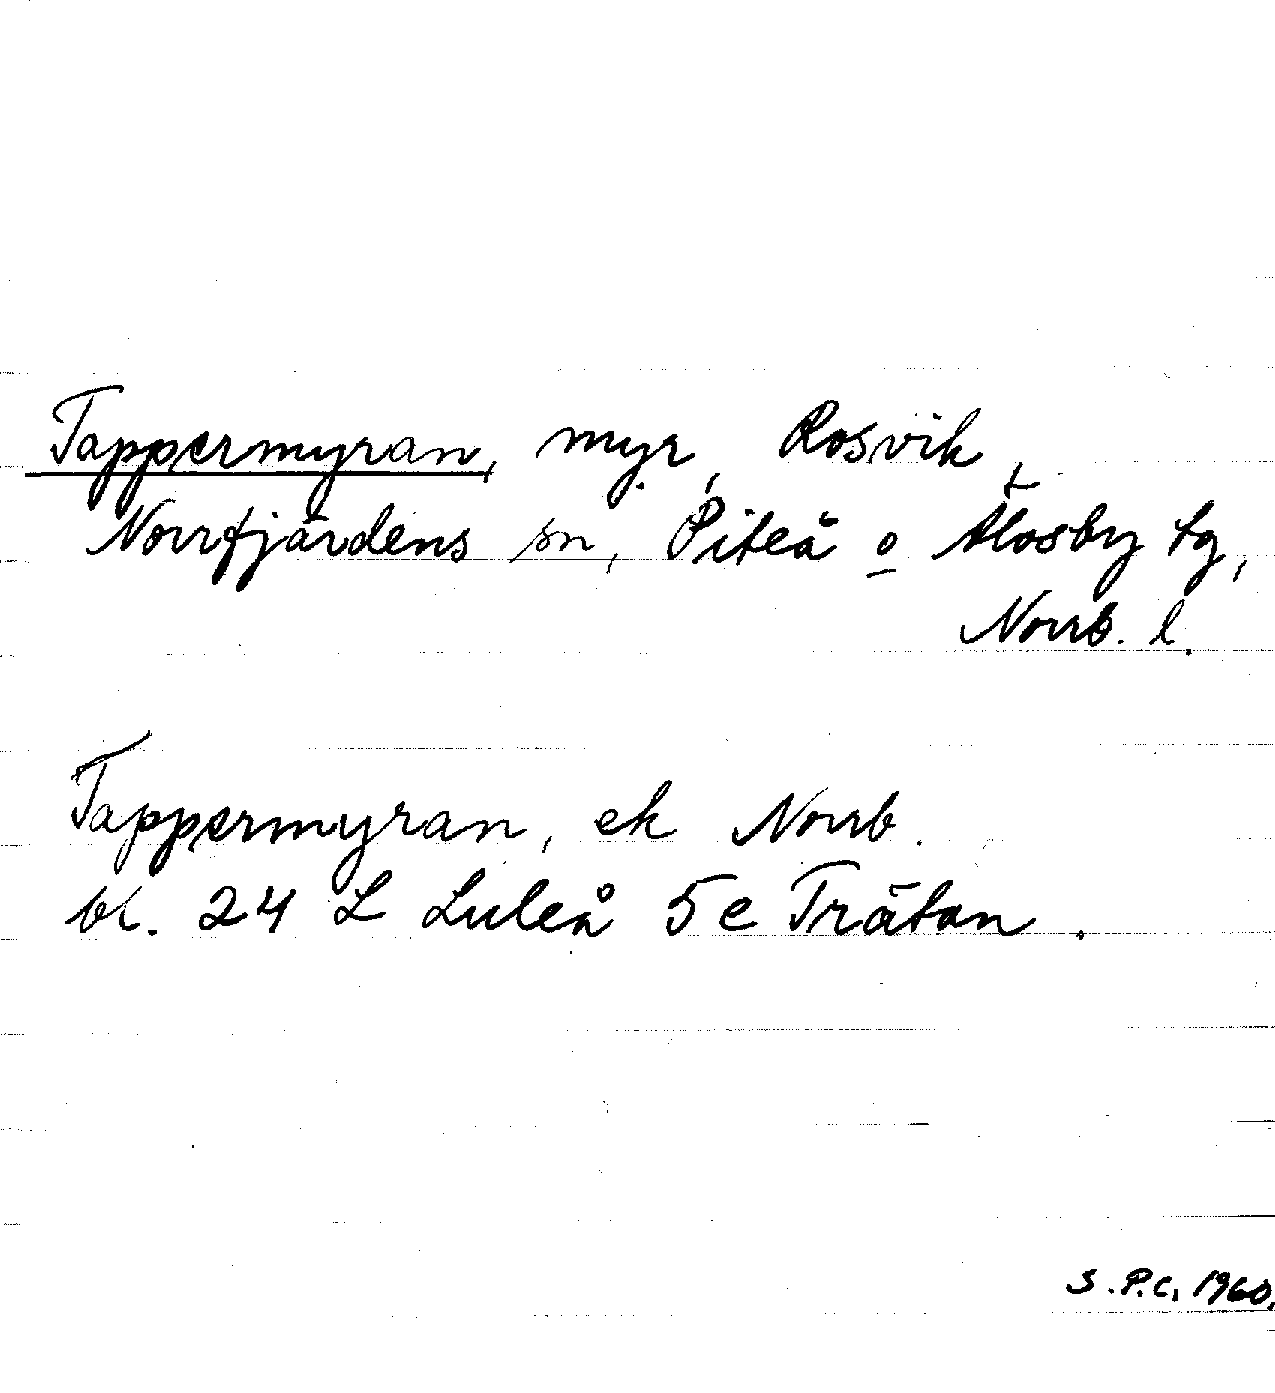 Tappermyran, myr, Rosvik,
Norrfjärdens sn, Piteå o Älvsby tg,
Norrb. l.
Tappermyran, ek Norrb.
bl. 24 L Luleå 5e Trätan.
S.P.C. 1960.